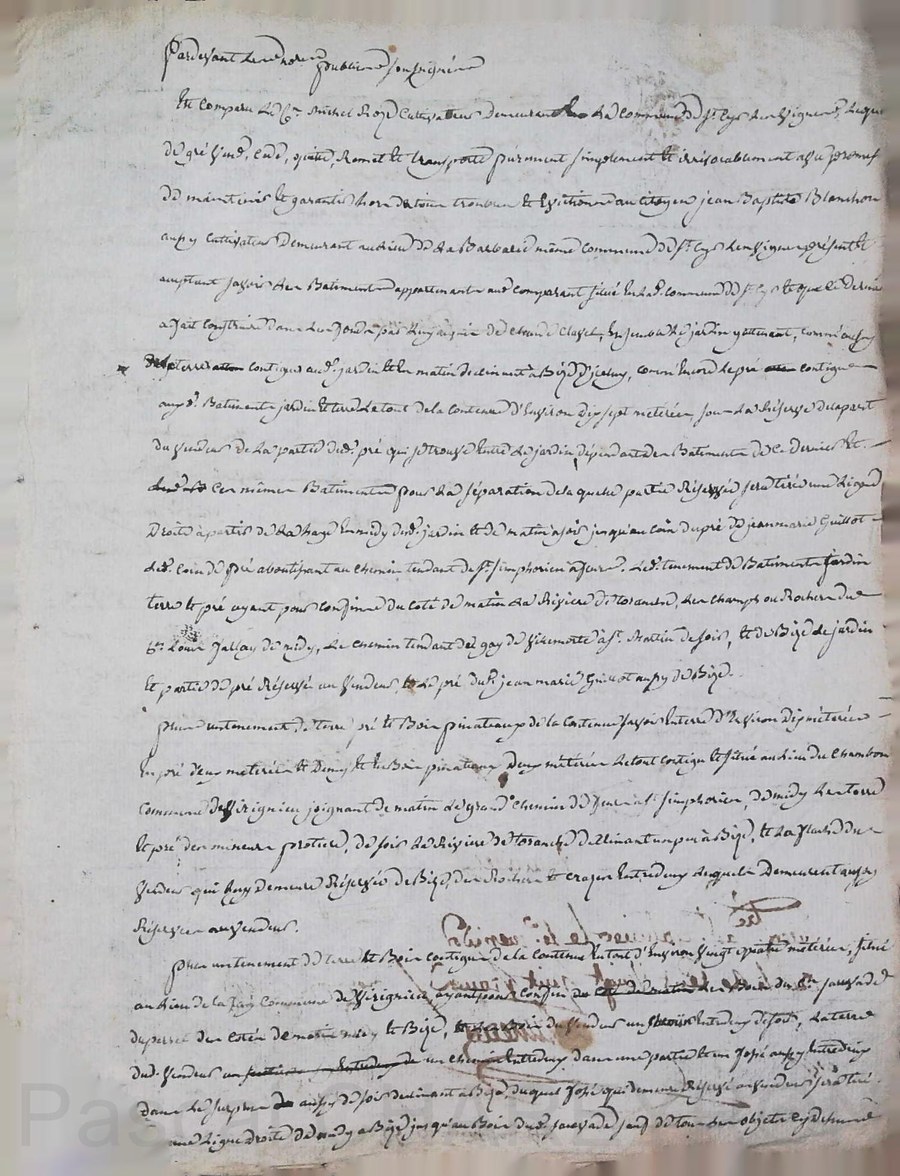 Pardevant les notaires publics soussignés
Est comparu le Cen Michel Roze Cultivateur demeurant en la commune de St Cyr les Vignes, lequel
de gré vend, cede, quitte, Remet et transporte purement simplement et irrévocablement avec promesse
de maintenir et garantir hors de tous troubles et Evictions au citoyen jean Baptiste Blanchon
aussy cultivateur demeurant au lieu de la Barbarie même commune de St Cyr les Vignes présent et
acceptant savoir les Batiments appartenants aud. comparant situé en lad. commune de St Cyr et que ce dernier
a fait construire dans le fonds par luy acquis de Claude Clavel, Ensemble le jardin y attenant, comme aussy
terre contigue aud. jardin et en matin declinant à Bize d'icelluy, comme Encore le pré contigue
auxd. Batiments jardin et terre le tout de la contenue d'Environ dix sept meterées, sous la Réserve de la part
du vendeur de la partie dud. pré qui se trouve entre le jardin dépendant des Batiments de ce dernier et
ces mêmes Batiments pour la séparation de laquelle partie Réservée sera tirée une ligne
Droite à partir de la haye en midy dud. jardin et de matin à soir jusqu'au coin du pré de jean marie Guillot
led. coin de pré aboutissant au chemin tendant de St simphorien à feurs. Led. tenement de Batiments Jardin
terre et pré ayant pour confins du coté de matin la Riviere de toranche, les champs ou Rochers du
Cen Louis Jallay de midy, le chemin tendant du gay de Viremonte à St Martin de soir, et de Bize le jardin
et partie de pré Réservés au vendeur et le pré dud. jean marie Guillot aussy de Bize.
Plus un tenement de terre pré et Bois pinateaux de la contenue savoir en terre d'Environ dix métérées
en pré deux meterées et demy et en Bois pinateaux deux métérées le tout contigu et situé au lieu du Chambon
commune de Virignieu joignant de matin le grand Chemin de feurs à St simphorien, de midy les terre
et pré des mineurs protiere, de soir la Riviere de toranche declinant un peu à Bize, et la du
vendeur qui luy demeure Réservée de Bize, des Rochers et entredeux lesquels Demeurent aussy
Réservés au vendeur.
Plus un tenement de terre et Bois contigus de la contenue Estant d'Environ vingt quatre métérées, situé
au lieu de la Commune de Virignieu, ayant pour confins les Bois du Cen sauvade
du perret des cotés de matin midy et Bize, et les Bois du vendeur un Entredeux de soir, la terre
dud. vendeur un chemin Entredeux dans une partie et un fossé aussy Entredeux
dans le surplus aussy de soir declinant à Bize, duquel fossé qui demeure Réservé au vendeur sera tiré
une ligne droite de midy à Bize jusqu'au Bois dud. sauvade sauf de tous les objets cy dessus